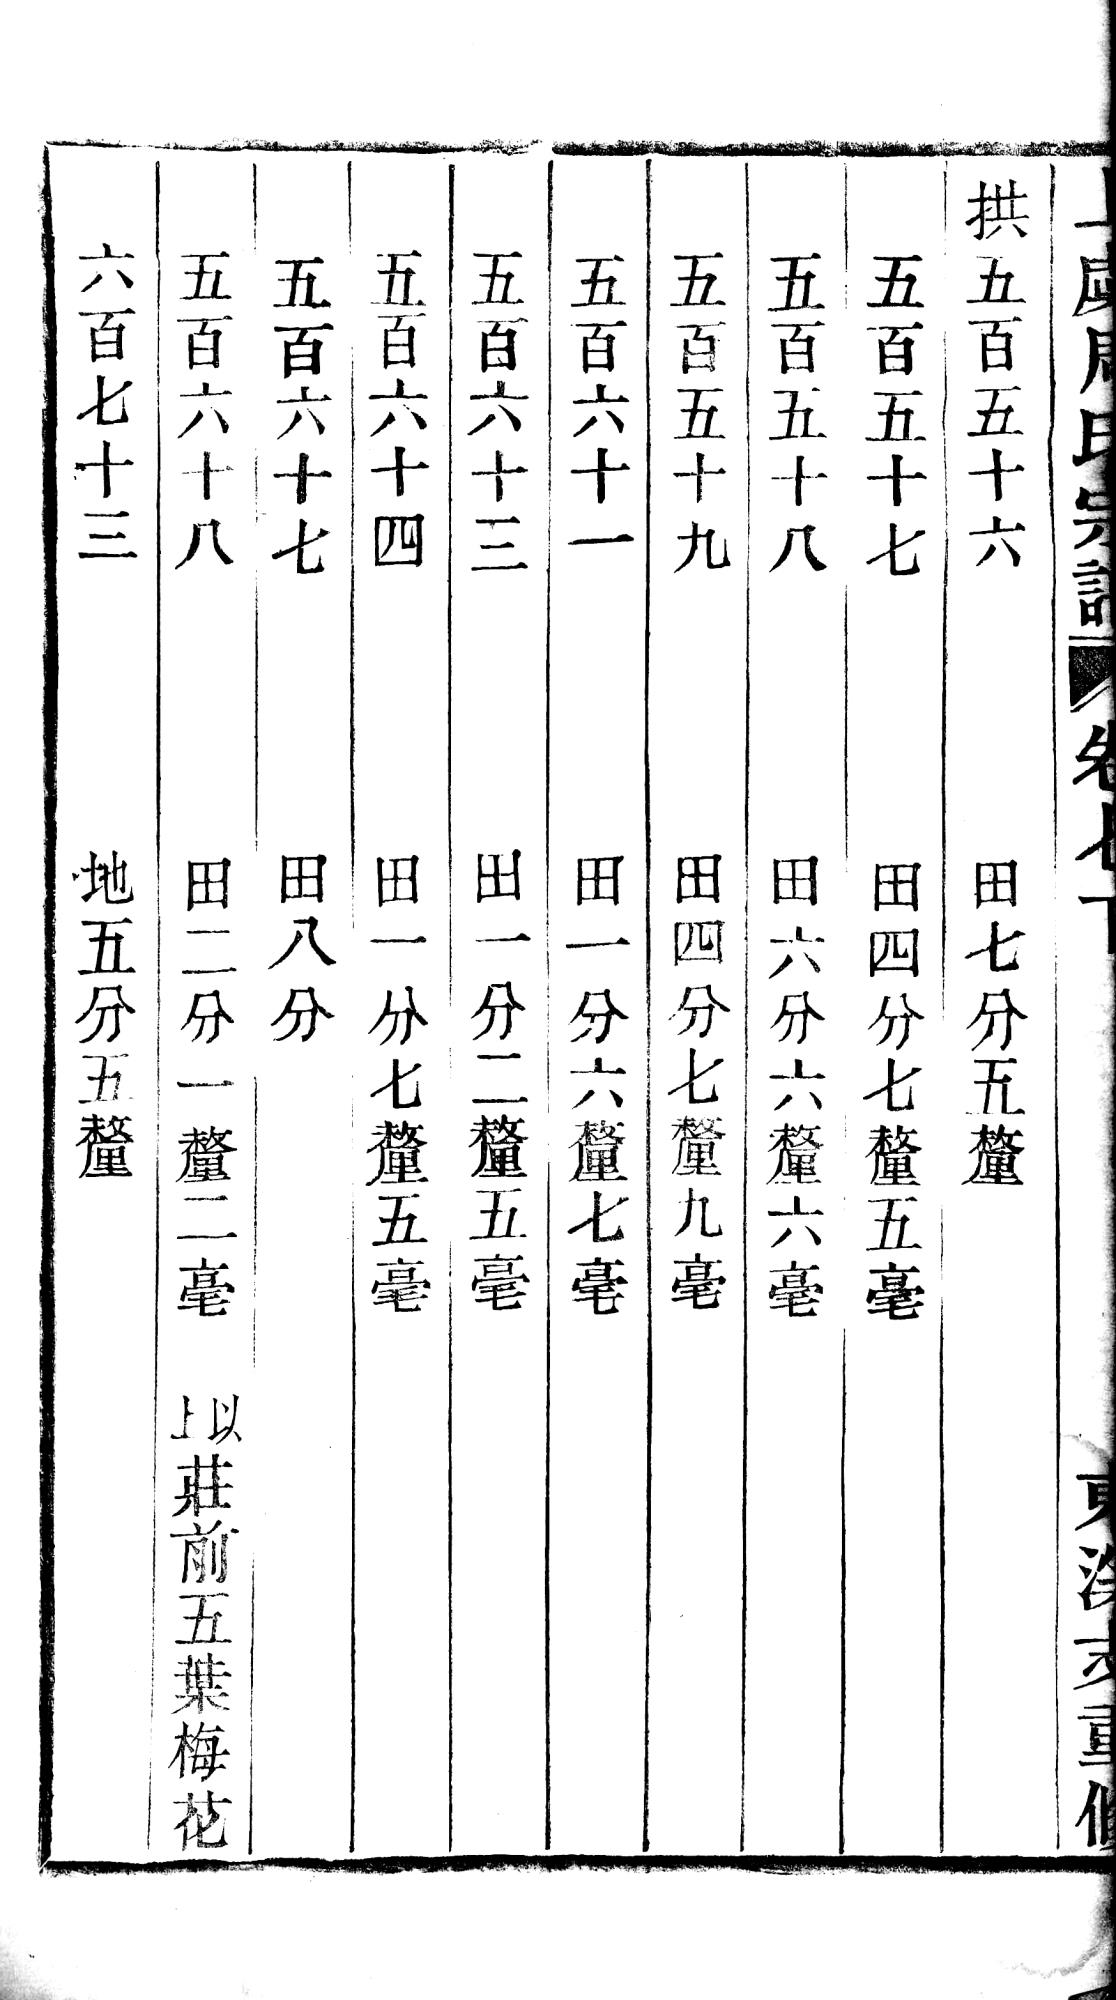 周氏宗譜 卷七下
拱五百五十六 田七分五釐
五百五十七 田四分七釐五毫
五百五十八 田六分六釐六毫
五百五十九 田四分七釐九毫
五百六十一 田一分六釐七毫
五百六十三 田一分二釐五毫
五百六十四 田一分七釐五毫
五百六十七 田八分
五百六十八 田二分一釐二毫 以上莊前五葉梅花
六百七十三 地五分五釐